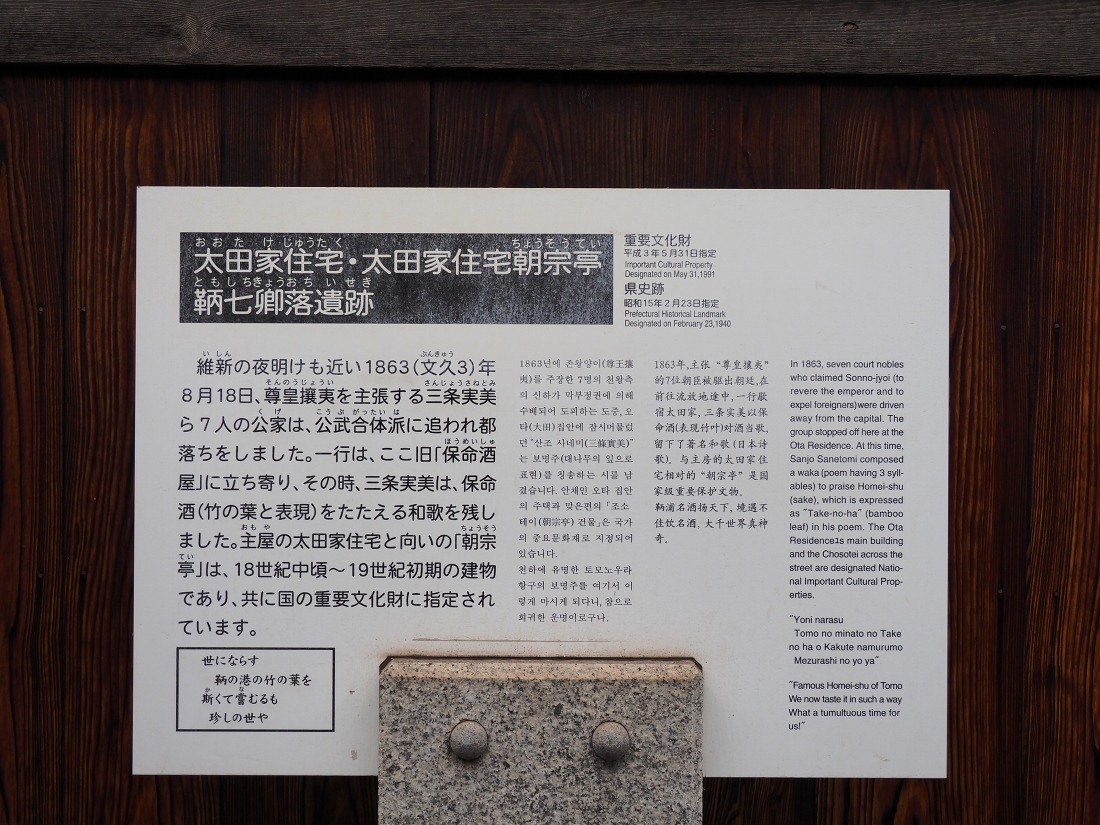 おおたけじゅうたく ちょうそうてい
太田家住宅・太田家住宅朝宗亭
ともしちきょうおちいせき
鞆七卿落遺跡
重要文化財
平成3年5月31日指定
Important Cultural Property
Designated on May 31,1991
県史跡
昭和15年2月23日指定
Prefectural Historical Landmark
Designated on February 23,1940
いしん ぶんきゅう
維新の夜明けも近い1863(文久3)年
そんのうじょうい さんじょうさねとみ
8月18日、尊皇攘夷を主張する三条実美
くげ こうぶがったいは
ら7人の公家は、公武合体派に追われ都
ほうめいしゅ
落ちをしました。一行は、ここ旧「保命酒
屋」に立ち寄り、その時、三条実美は、保命
酒(竹の葉と表現)をたたえる和歌を残し
おもや ちょうそう
ました。主屋の太田家住宅と向いの「朝宗
てい
亭」は、18世紀中頃〜19世紀初期の建物
であり、共に国の重要文化財に指定され
ています。
世にならす
鞆の港の竹の葉を
か な
斯くて嘗むるも
珍しの世や
1863년에 존왕양이(尊王攘
夷)를 주장한 7명의 천왕측
의 신하가 막부정권에 의해
수배되어 도피하는 도중, 오
타(大田)집안에 잠시머물렀
던 "산조 사네미(三條實美)"
는 보명주(대나무의 잎으로
표현)를 칭송하는 시를 남
겼습니다. 안채인 오타 집안
의 주택과 맞은편의 「조소
테이(朝宗亭) 건물」은 국가
의 중요문화재로 지정되어
있습니다.
천하에 유명한 토모노우라
항구의 보명주를 여기서 이
렇게 마시게 되다니, 참으로
희귀한 운명이로구나.
1863年,主张“尊皇攘夷”
的7位朝臣被驱出朝廷,在
前往流放地途中,一行歇
宿太田家,三条实美以保
命酒(表现竹叶)对酒当歌,
留下了著名和歌(日本诗
歌)，与主房的太田家住
宅相对的“朝宗亭”是国
家级重要保护文物。
鞆浦名酒扬天下,境遇不
佳饮名酒,大千世界真神
奇。
In 1863, seven court nobles
who claimed Sonno-jyoi (to
revere the emperor and to
expel foreigners)were driven
away from the capital. The
group stopped off here at the
Ota Residence. At this time,
Sanjo Sanetomi composed
a waka (poem having 3 syll-
ables) to praise Homei-shu
(sake), which is expressed
as "Take-no-ha" (bamboo
leaf) in his poem. The Ota
Residence1s main building
and the Chosotei across the
street are designated Natio-
nal Important Cultural Prop-
erties.
"Yoni narasu
Tomo no minato no Take
no ha o Kakute namurumo
Mezurashi no yo ya"
"Famous Homei-shu of Tomo
We now taste it in such a way
What a tumultuous time for
us!"